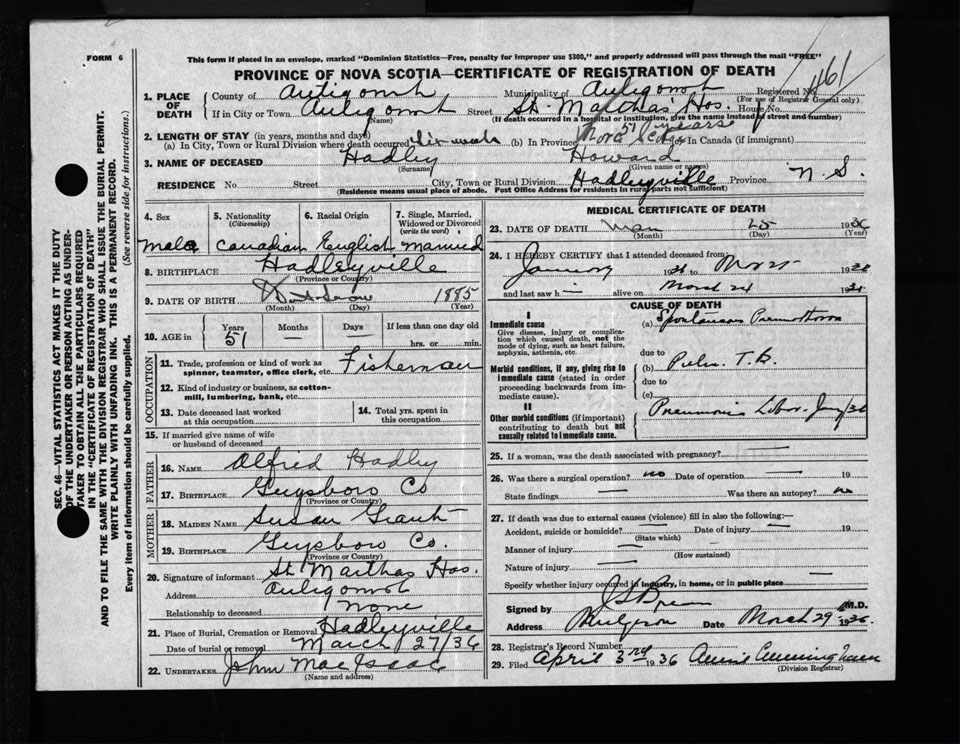 FORM 6
This form if placed in an envelope, marked "Dominion Statistics—Free, penalty for improper use $300," and properly addressed will pass through the mail "FREE"
PROVINCE OF NOVA SCOTIA—CERTIFICATE OF REGISTRATION OF DEATH
1. PLACE OF DEATH County of Antigonish Municipality of Antigonish Registered No. 1161
(For use of Registrar General only)
If in City or Town Antigonish Street St. Marthas Hos. House No.
(If death occurred in a hospital or institution, give the name instead of street and number)
2. LENGTH OF STAY (in years, months and days)
(a) In City, Town or Rural Division where death occurred (b) In Province Nova Scotia 51 years (c) In Canada (if immigrant)
3. NAME OF DECEASED Hadley Howard
(Surname) (Given name or names)
RESIDENCE No Street City, Town or Rural Division Hadleyville Province N.S.
(Residence means usual place of abode. Post Office Address for residents in rural parts not sufficient)
4. Sex male
5. Nationality (Citizenship) Canadian
6. Racial Origin English
7. Single, Married, Widowed or Divorced (write the word) married
8. BIRTHPLACE Hadleyville
(Province or Country)
9. DATE OF BIRTH 1885
(Month) (Day) (Year)
10. AGE in Years 51 Months — Days — If less than one day old hrs. or min.
OCCUPATION
11. Trade, profession or kind of work as spinner, teamster, office clerk, etc. Fisherman
12. Kind of industry or business, as cotton-mill, lumbering, bank, etc.
13. Date deceased last worked at this occupation
14. Total yrs. spent in this occupation
15. If married give name of wife or husband of deceased
FATHER
16. NAME Alfred Hadley
17. BIRTHPLACE Guysboro Co
(Province or Country)
MOTHER
18. MAIDEN NAME Susan Grant
19. BIRTHPLACE Guysboro Co.
(Province or Country)
20. Signature of informant St. Marthas Hos.
Address Antigonish
Relationship to deceased None
21. Place of Burial, Cremation or Removal Hadleyville
Date of burial or removal March 27/36
22. UNDERTAKER John MacIsaac
(Name and address)
MEDICAL CERTIFICATE OF DEATH
23. DATE OF DEATH Mar 25 1936
(Month) (Day) (Year)
24. I HEREBY CERTIFY that I attended deceased from
January 1936 to March 1936
and last saw h alive on March 24 1936
CAUSE OF DEATH
I
Immediate cause
Give disease, injury or complication which caused death, not the mode of dying, such as heart failure, asphyxia, asthenia, etc.
(a) Spontaneous Pneumothorax
due to
Morbid conditions, if any, giving rise to immediate cause (stated in order proceeding backwards from immediate cause).
(b) Pulm. T.B.
due to
(c)
II
Other morbid conditions (if important) contributing to death but not causally related to immediate cause.
Pneumonia Lobar. Jany/36
25. If a woman, was the death associated with pregnancy? —
26. Was there a surgical operation? no Date of operation — 19
State findings — Was there an autopsy? no
27. If death was due to external causes (violence) fill in also the following:
Accident, suicide or homicide? — Date of injury — 19
(State which)
Manner of injury —
(How sustained)
Nature of injury —
Specify whether injury occurred in industry, in home, or in public place —
Signed by M.D.
Address Mulgrave Date March 29 1936.
28. Registrar's Record Number
29. Filed April 3rd 1936 Annie Cunningham
(Division Registrar)
SEC. 46—VITAL STATISTICS ACT MAKES IT THE DUTY
OF THE UNDERTAKER OR PERSON ACTING AS UNDER-
TAKER TO OBTAIN ALL THE PARTICULARS REQUIRED
IN THE "CERTIFICATE OF REGISTRATION OF DEATH"
AND TO FILE THE SAME WITH THE DIVISION REGISTRAR WHO SHALL ISSUE THE BURIAL PERMIT.
WRITE PLAINLY WITH UNFADING INK. THIS IS A PERMANENT RECORD.
Every item of information should be carefully supplied. (See reverse side for instructions.)